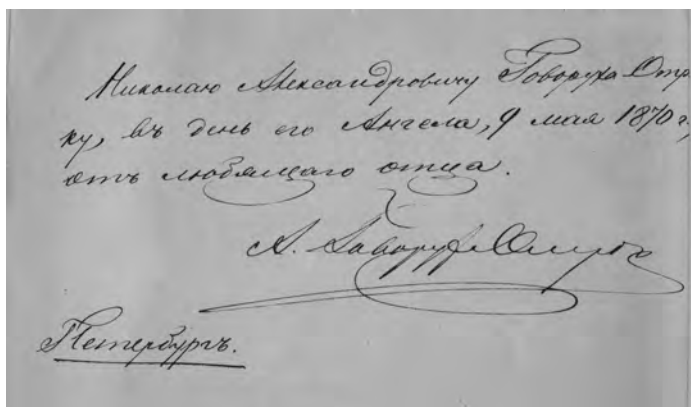 Николаю Александровичу Говоруха-Отро
ку, въ день его Ангела, 9 мая 1870 г.,
отъ любящаго отца.
А. Говоруха-Отрок
Петербургъ.